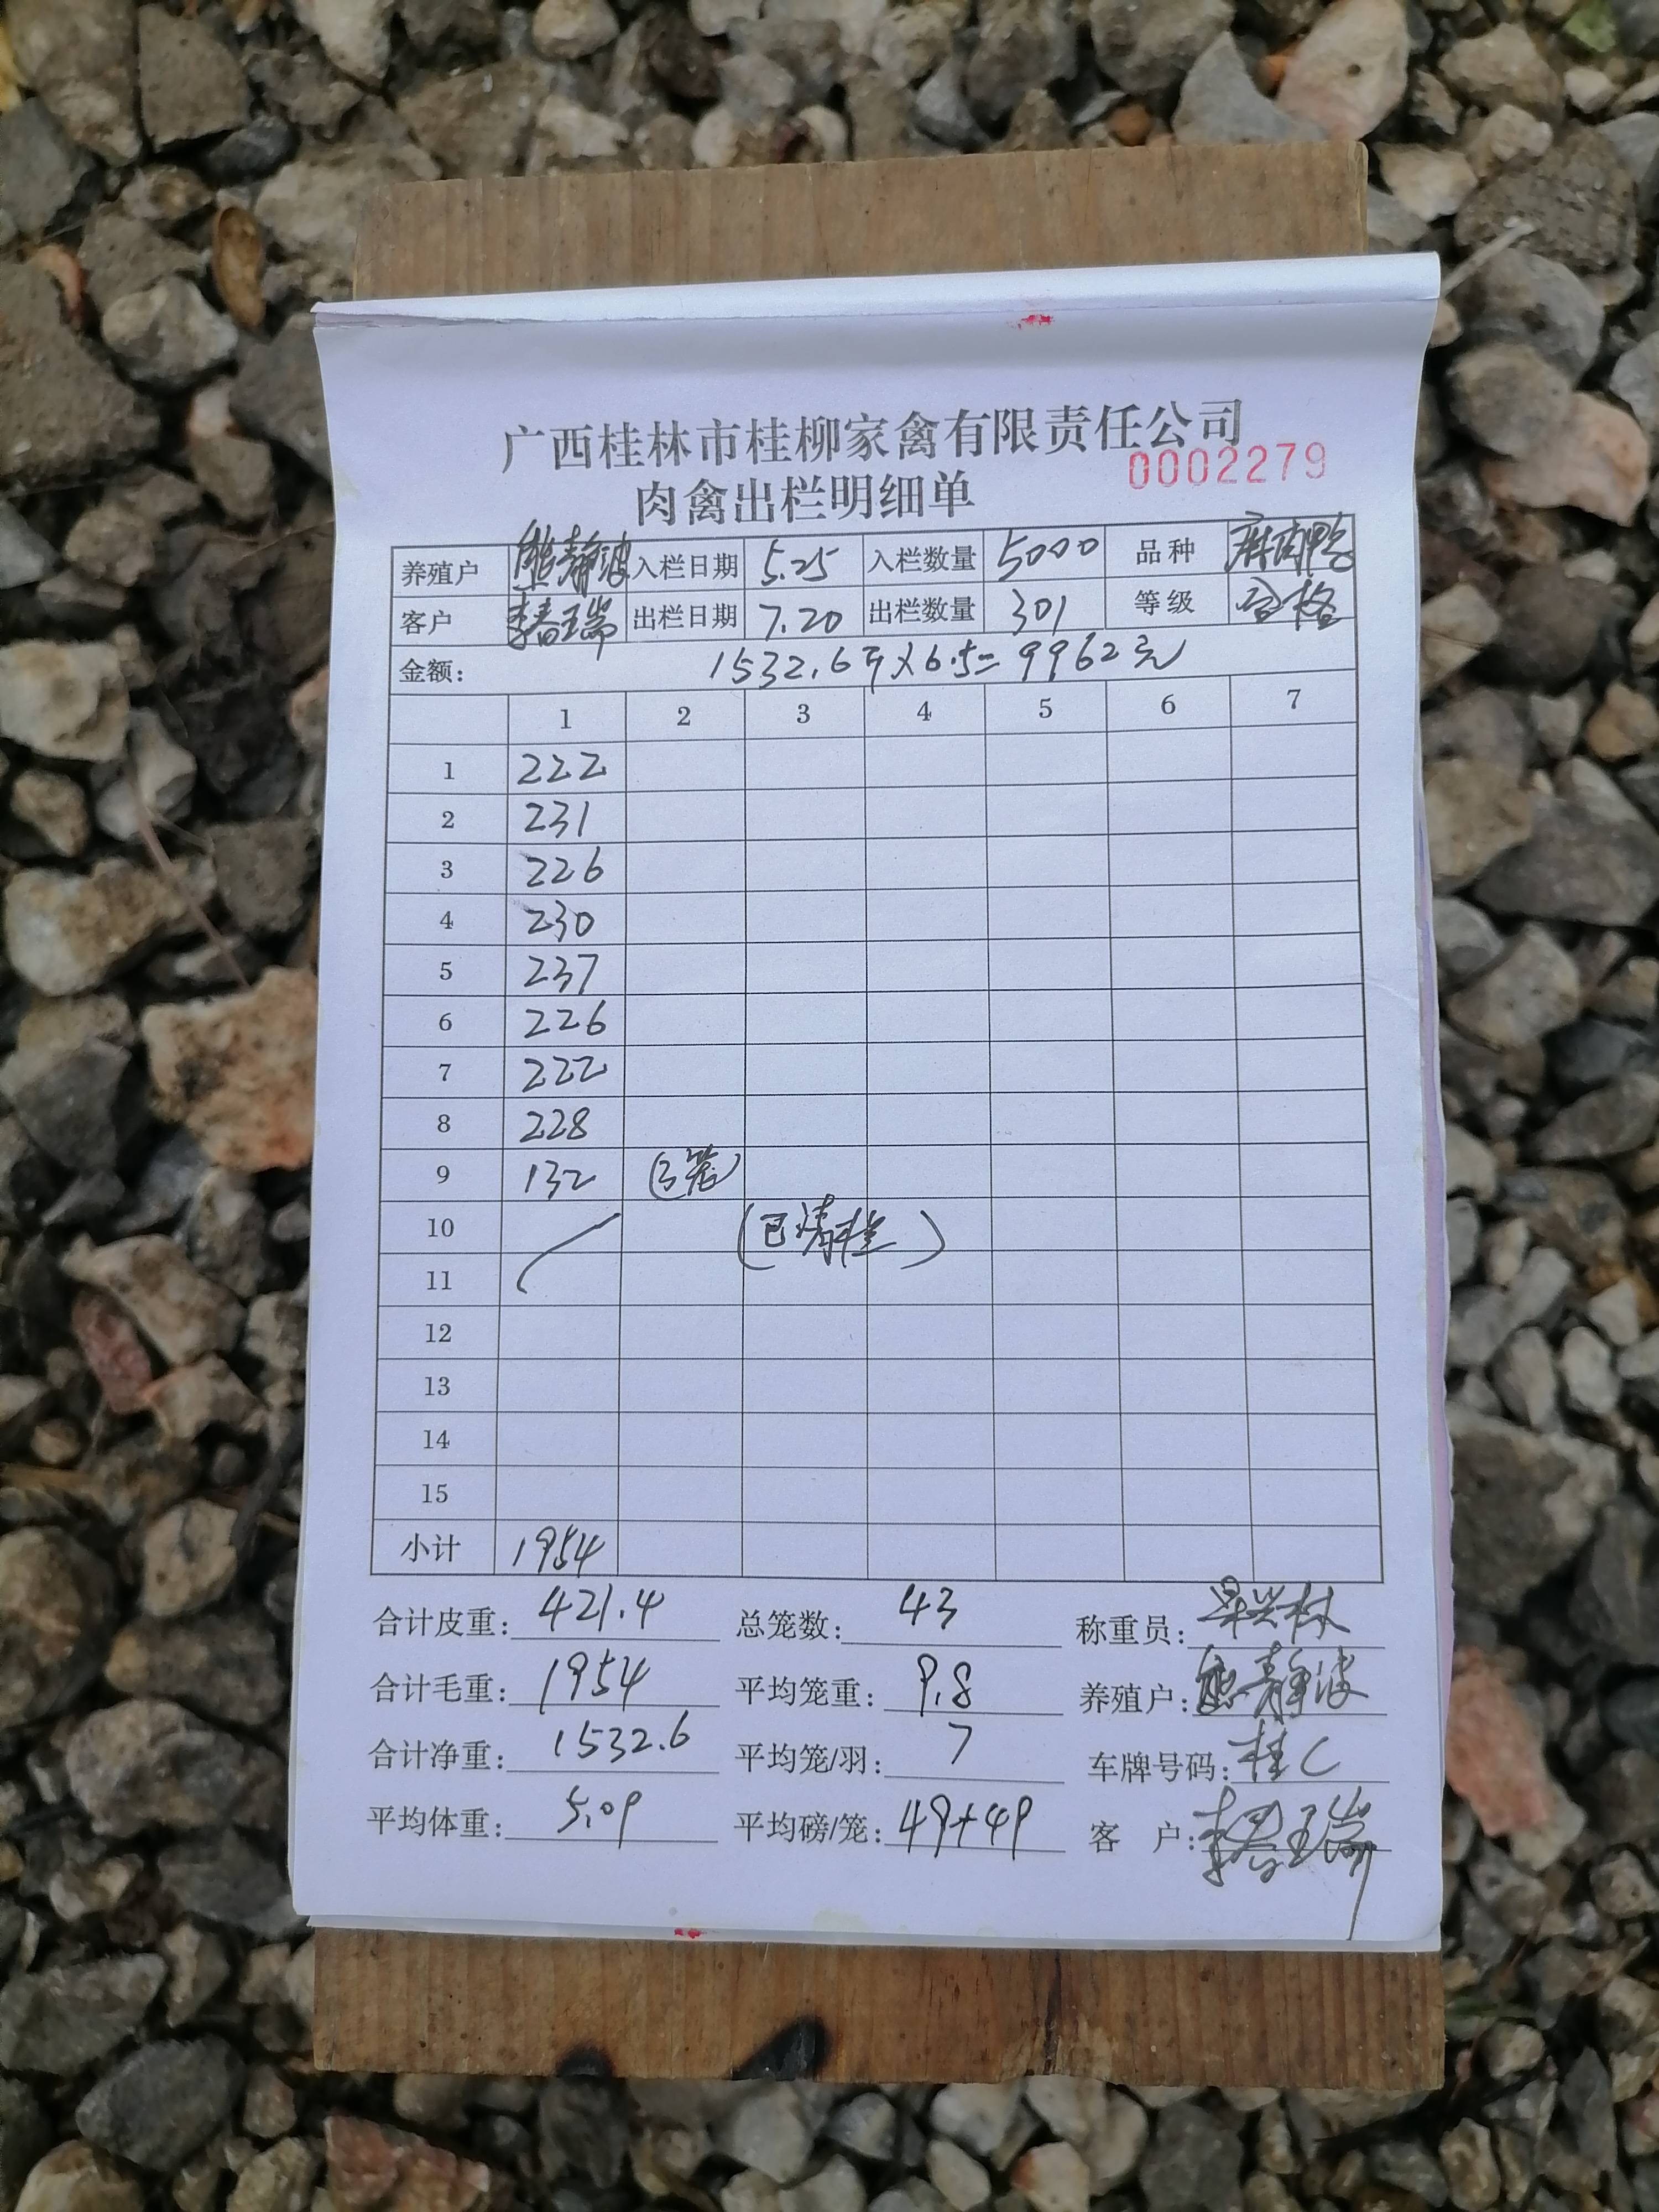 广西桂林市桂柳家禽有限责任公司
0002279
肉禽出栏明细单
养殖户 熊静波 入栏日期 5.25 入栏数量 5000 品种 麻肉鸭
客户 李春瑞 出栏日期 7.20 出栏数量 301 等级 合格
金额: 1532.6斤×6.5=9962元
1 2 3 4 5 6 7
1 222
2 231
3 226
4 230
5 237
6 226
7 222
8 228
9 132 (3笼)
10 (已清栏)
11
12
13
14
15
小计 1954
合计皮重: 421.4 总笼数: 43 称重员:
合计毛重: 1954 平均笼重: 9.8 养殖户: 熊静波
合计净重: 1532.6 平均笼/羽: 7 车牌号码: 桂C
平均体重: 5.09 平均磅/笼: 49+49 客 户: 李春瑞